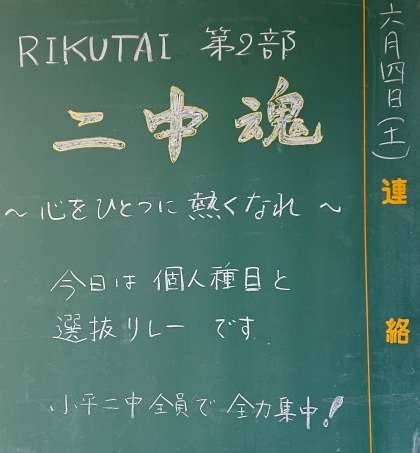 六月四日(土)
連絡
RIKUTAI 第2部
二中魂
～心をひとつに熱くなれ～
今日は個人種目と
選抜リレーです
小平二中全員で全力集中!